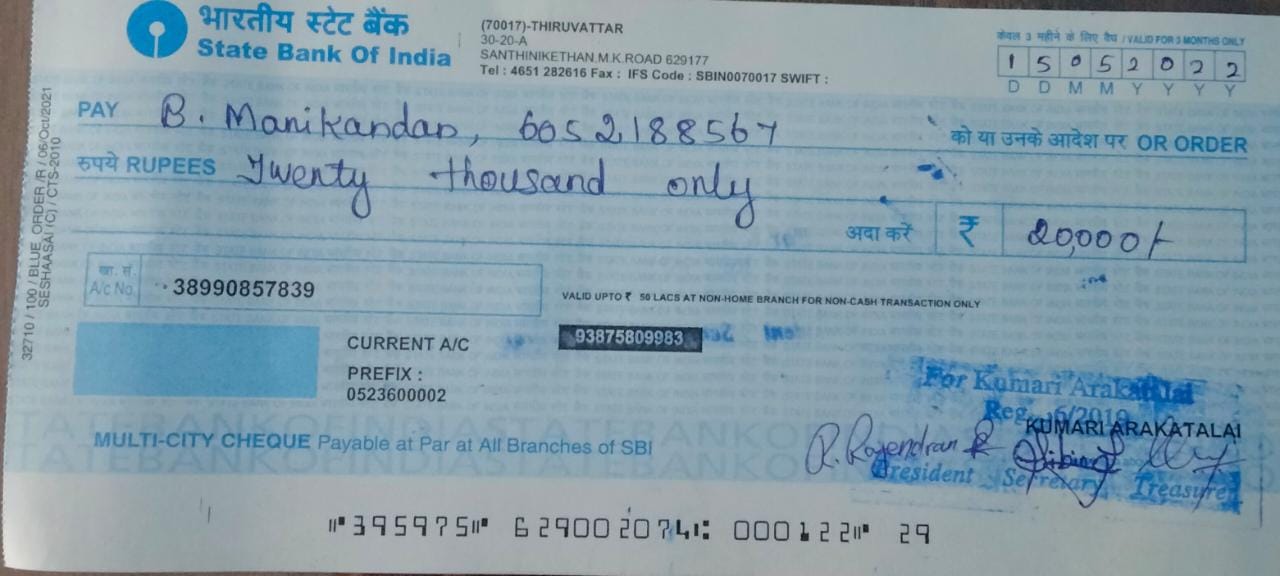 भारतीय स्टेट बैंक
State Bank Of India
(70017)-THIRUVATTAR
30-20-A
SANTHINIKETHAN,M.K.ROAD 629177
Tel : 4651 282616 Fax : IFS Code : SBIN0070017 SWIFT :
केवल 3 महीने के लिए वैध / VALID FOR 3 MONTHS ONLY
1 5 0 5 2 0 2 2
D D M M Y Y Y Y
PAY B. Manikandan, 6052188567 को या उनके आदेश पर OR ORDER
रुपये RUPEES Twenty thousand only
अदा करें ₹ 20,000/-
खा. सं.
A/c No. 38990857839
VALID UPTO ₹ 50 LACS AT NON-HOME BRANCH FOR NON-CASH TRANSACTION ONLY
93875809983
CURRENT A/C
PREFIX :
0523600002
For Kumari Arakattalai
KUMARI ARAKATALAI
R. Rajendran
President Secretary Treasurer
MULTI-CITY CHEQUE Payable at Par at All Branches of SBI
⑈395975⑈ 629002074⑆ 000122⑈ 29
32710 / 100 / BLUE_ORDER /R / 06/Oct/2021
SESHAASAI (C) / CTS-2010